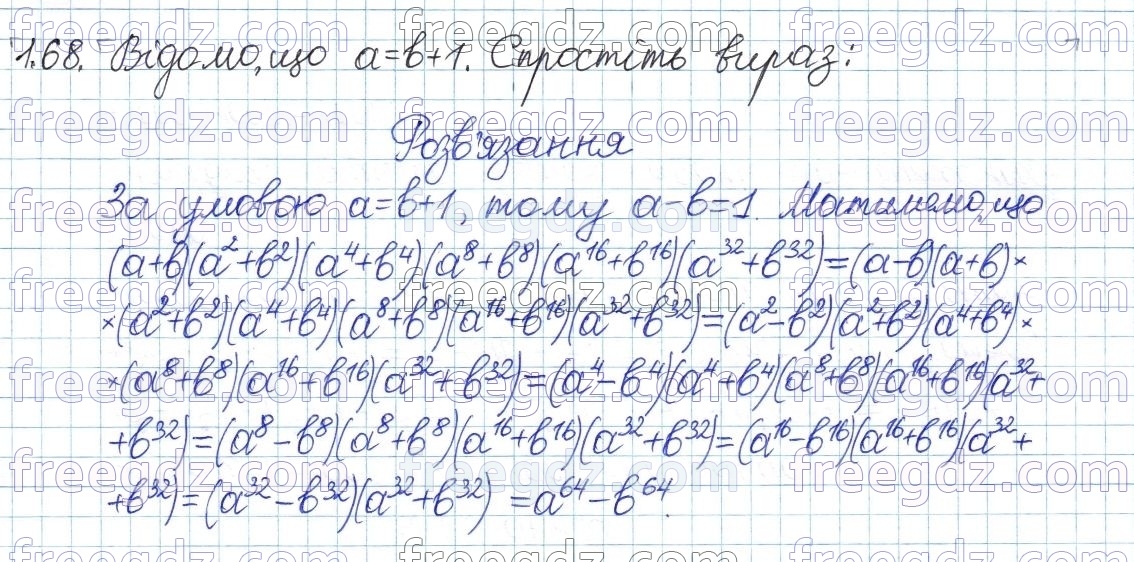 1.68. Відомо, що a=b+1. Спростіть вираз:
Розв'язання
За умовою a=b+1, тому a-b=1. Матимемо, що
(a+b)(a²+b²)(a⁴+b⁴)(a⁸+b⁸)(a¹⁶+b¹⁶)(a³²+b³²)=(a-b)(a+b)×
×(a²+b²)(a⁴+b⁴)(a⁸+b⁸)(a¹⁶+b¹⁶)(a³²+b³²)=(a²-b²)(a²+b²)(a⁴+b⁴)×
×(a⁸+b⁸)(a¹⁶+b¹⁶)(a³²+b³²)=(a⁴-b⁴)(a⁴+b⁴)(a⁸+b⁸)(a¹⁶+b¹⁶)(a³²+
+b³²)=(a⁸-b⁸)(a⁸+b⁸)(a¹⁶+b¹⁶)(a³²+b³²)=(a¹⁶-b¹⁶)(a¹⁶+b¹⁶)(a³²+
+b³²)=(a³²-b³²)(a³²+b³²) =a⁶⁴-b⁶⁴.